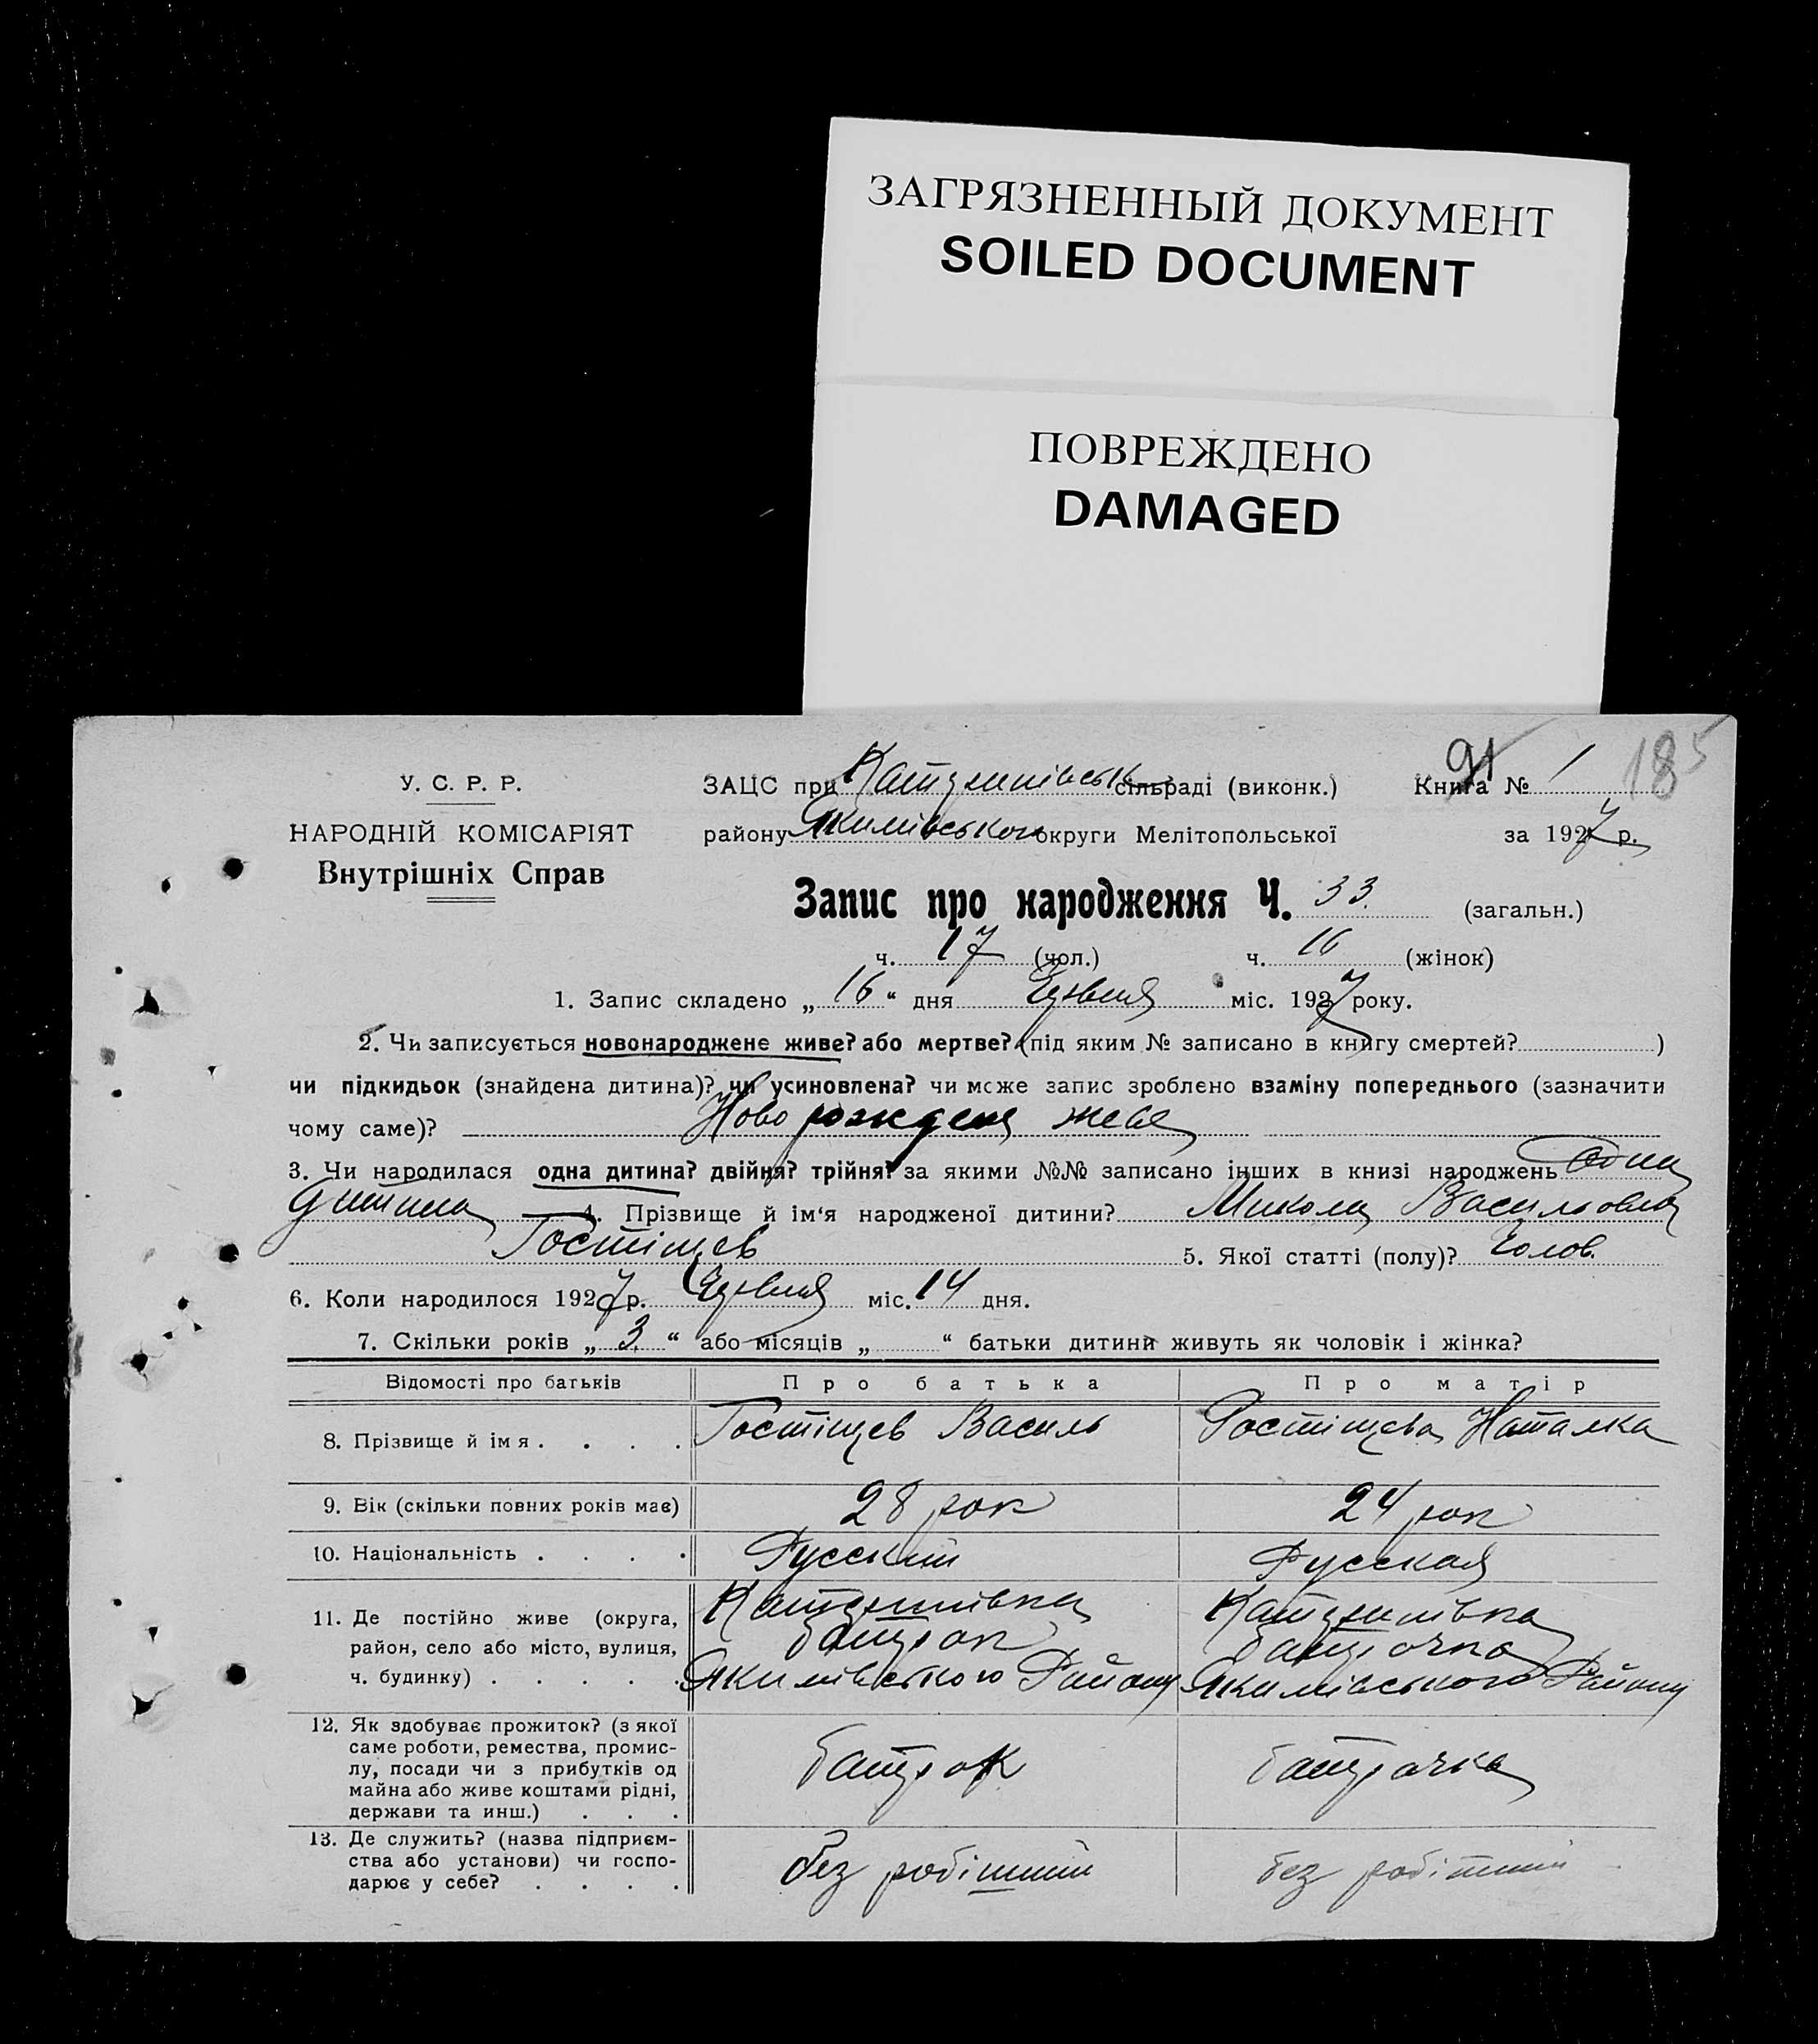 ЗАГРЯЗНЕННЫЙ ДОКУМЕНТ
SOILED DOCUMENT
ПОВРЕЖДЕНО
DAMAGED
У. С. Р. Р.
НАРОДНІЙ КОМІСАРІЯТ
Внутрішніх Справ
91 185
ЗАЦС при сільраді (виконк.) Книга № 1
району Якимівського округи Мелітопольської за 1927 р.
Запис про народження Ч. 33 (загальн.)
ч. 17 (чол.) ч. 16 (жінок)
1. Запис складено „ 16 “ дня міс. 1927 року.
2. Чи записується новонароджене живе? або мертве? (під яким № записано в книгу смертей? )
чи підкидьок (знайдена дитина)? чи усиновлена? чи може запис зроблено взаміну попереднього (зазначити
чому саме)? Ново рождена жева
3. Чи народилася одна дитина? двійня? трійня? за якими №№ записано інших в книзі народжень одна
дитина 4. Прізвище й ім‘я народженої дитини? Микола
Гостіщев 5. Якої статті (полу)? Чолов.
6. Коли народилося 1927 р. міс. 14 дня.
7. Скільки років „ 3 “ або місяців „ “ батьки дитини живуть як чоловік і жінка?
Відомості про батьків Про батька Про матір
8. Прізвище й імя . . . . Гостіщев Василь Гостіщева Наталка
9. Вік (скільки повних років має) 28 рок 24 рок
10. Національність . . . . Русский Русская
11. Де постійно живе (округа,
район, село або місто, вулиця,
ч. будинку) . . . . .
батрак батрачка
Якимівського Району Якимівського Району
12. Як здобуває прожиток? (з якої
саме роботи, ремества, промис-
лу, посади чи з прибутків од
майна або живе коштами рідні,
держави та инш.) . . .
батрак батрачка
13. Де служить? (назва підприєм-
ства або установи) чи госпо-
дарює у себе? . . . .
без робітний без робітний